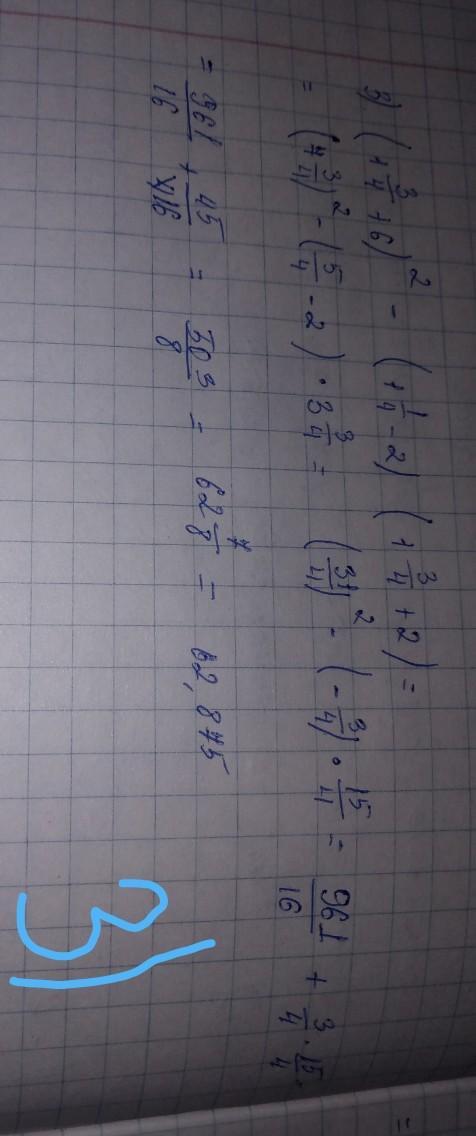 3) (1 3/4 + 6)² - (1 1/4 - 2) (1 3/4 + 2) =
= (7 3/4)² - (5/4 - 2) · 3 3/4 = (31/4)² - (- 3/4) · 15/4 = 961/16 + 3/4 · 15/4
= 961/16 + 45/16 = 503/8 = 62 7/8 = 62,875
3)
=